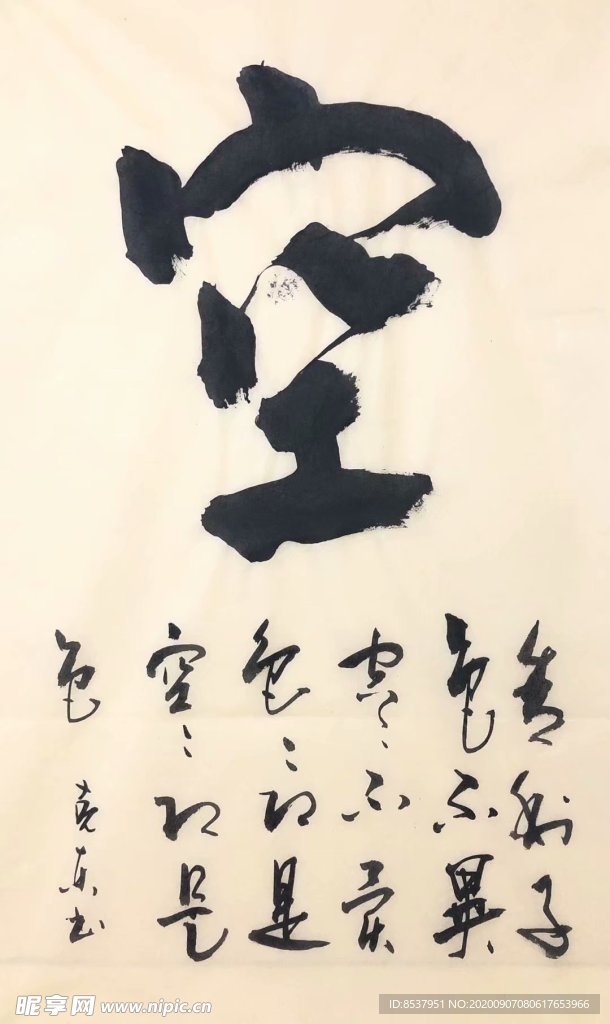 空
舍利子
色不異
空〻不異
色〻即是
空〻即是
色
克东书
昵享网 www.nipic.cn
ID:8537951 NO:20200907080617653966